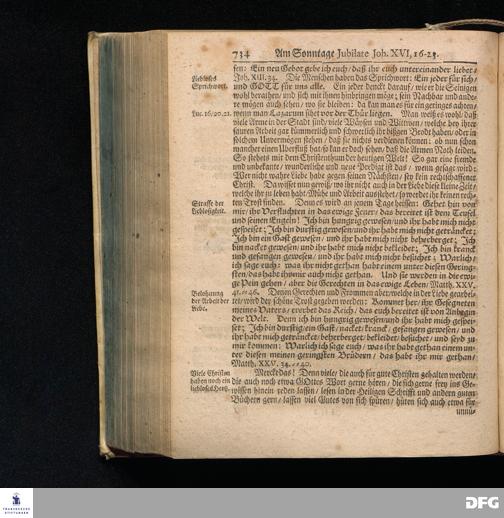 734 Am Sonntage Jubilate Joh. XVI, 16-23.
sen: Ein neu Gebot gebe ich euch/ daß ihr euch untereinander liebet/
Liebloses Sprichwort.
Joh. XIII. 34. Die Menschen haben das Sprichwort: Ein jeder für sich/
und GOTT für uns alle. Ein jeder dencket darauf/ wie er die Seinigen
wohl berathen/ und sich mit ihnen hinbringen möge; sein Nachbar und ande-
re mögen auch sehen/ wo sie bleiben: da kan man es für ein geringes achten/
Luc. 16/20.21.
wenn man Lazarum siehet vor der Thür liegen. Man weiß es wohl/ daß
viele Arme in der Stadt sind/ viele Wäysen und Wittwen/ welche bey ihrer
sauren Arbeit gar kümmerlich und schwerlich ihr bißgen Brodt haben/ oder in
solchem Unvermögen stehen/ daß sie nichts verdienen können: ob nun schon
mancher einen Uberfluß hat/ so kan er doch sehen/ daß die Armen Noth leiden.
So stehets mit dem Christenthum der heutigen Welt! So gar eine fremde
und unbekante/ wunderliche und neue Predigt ist das/ wenn gesagt wird:
Wer nicht wahre Liebe hat gegen seinen Nächsten/ sey kein rechtschaffener
Christ. Da wisset nun gewiß/ wo ihr nicht auch in der Liebe diese kleine Zeit/
welche ihr zu leben habt/ Mühe und Arbeit ausstehet/ so werdet ihr keinen rech-
Straffe der Lieblosigkeit.
ten Trost finden. Denn es wird an jenem Tage heissen: Gehet hin von
mir/ ihr Verfluchten in das ewige Feuer/ das bereitet ist dem Teufel
und seinen Engeln! Ich bin hungrig gewesen/ und ihr habt mich nicht
gespeiset; Ich bin durstig gewesen/ und ihr habt mich nicht geträncket;
Ich bin ein Gast gewesen/ und ihr habt mich nicht beherberget; Ich
bin nacket gewesen/ und ihr habt mich nicht bekleidet; Ich bin kranck
und gefangen gewesen/ und ihr habt mich nicht besuchet; Warlich/
ich sage euch: was ihr nicht gethan habt einem unter diesen Gering-
sten/ das habt ihr mir auch nicht gethan. Und sie werden in die ewi-
ge Pein gehen/ aber die Gerechten in das ewige Leben/ Matth. XXV.
Belohnung der Arbeit der Liebe.
41.=46. Denen Gerechten und Frommen aber/ welche in der Liebe gearbei-
tet/ wird der schöne Trost gegeben werden: Kommet her/ ihr Gesegneten
meines Vaters/ ererbet das Reich/ das euch bereitet ist von Anbegin
der Welt. Denn ich bin hungrig gewesen/ und ihr habt mich gespei-
set; Ich bin durstig/ ein Gast/ nacket/ kranck/ gefangen gewesen/ und
ihr habt mich geträncket/ beherberget/ bekleidet/ besuchet/ und seyd zu
mir kommen: Warlich ich sage euch/ was ihr habt gethan einem un-
ter diesen meinen geringsten Brüdern/ das habt ihr mir gethan/
Matth. XXV. 34.=40.
Viele Christen haben noch ein liebloses Hertz.
Mercket das! Denn viele/ die auch für gute Christen gehalten werden/
die auch noch etwa GOttes Wort gerne hören/ die sich gerne frey ins Ge-
wissen hinein reden lassen/ lesen in der Heiligen Schrifft und andern guten
Büchern gern/ lassen viel Gutes von sich spüren/ hüten sich auch etwa für
DFG